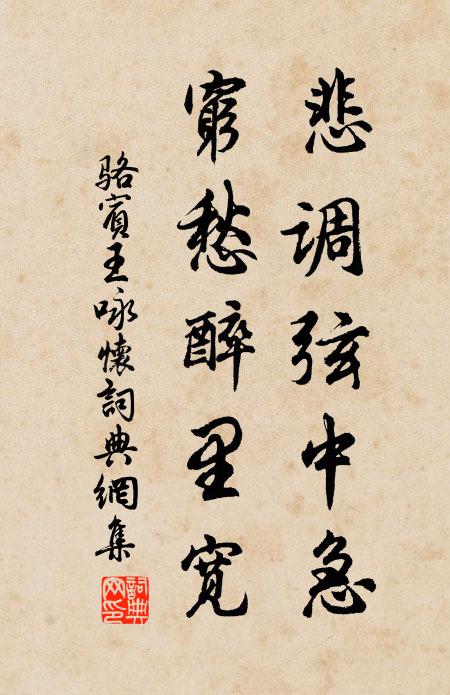 悲调弦中急
穷愁醉里宽
骆宾王咏怀詞典網集
詞典网印